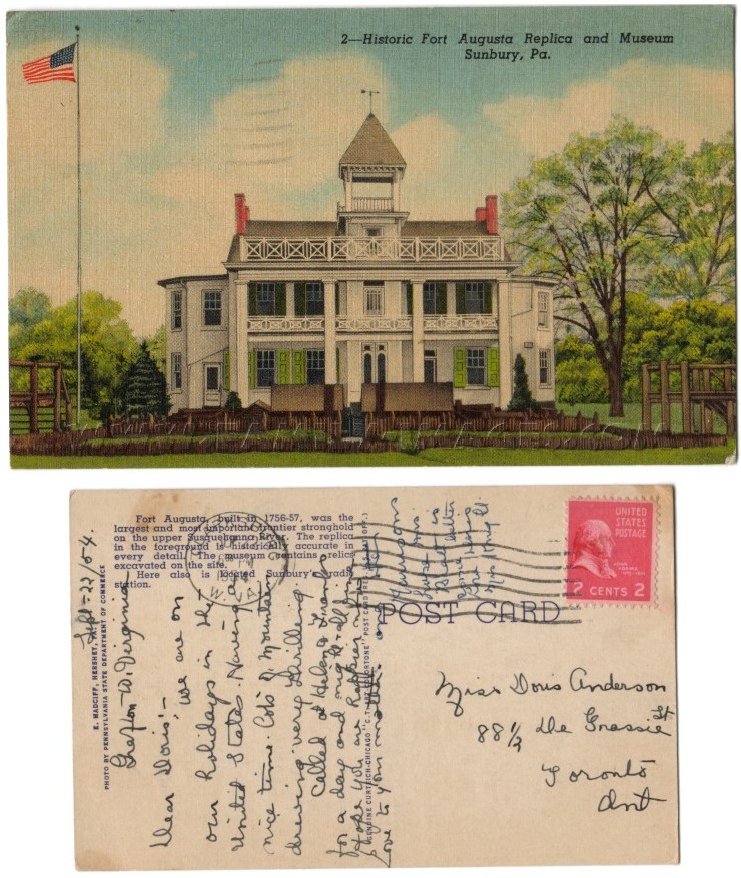 2—Historic Fort Augusta Replica and Museum
Sunbury, Pa.
Fort Augusta, built in 1756-57, was the
largest and most important frontier stronghold
on the upper Susquehanna River. The replica
in the foreground is historically accurate in
every detail. The museum contains relics
excavated on the site.
Here also is located Sunbury's radio
station.
E. MADCIFF, HERSHEY, PA.
PHOTO BY PENNSYLVANIA STATE DEPARTMENT OF COMMERCE
Sept - 22/54.
Grafton W. Virginia
Dear Doris:-
we are on
our holidays in the
United States. Having a
nice time. Lots of mountain
driving very thrilling
Called at Helen & Franks
for a day and night. all
hope you are
love to your mother
GENUINE CURTEICH-CHICAGO "C.T. ART-COLORTONE" POST CARD
POST CARD
UNITED
STATES
POSTAGE
JOHN
ADAMS
2 CENTS 2
Miss Doris Anderson
88½ De Grassie St
Toronto
Ont